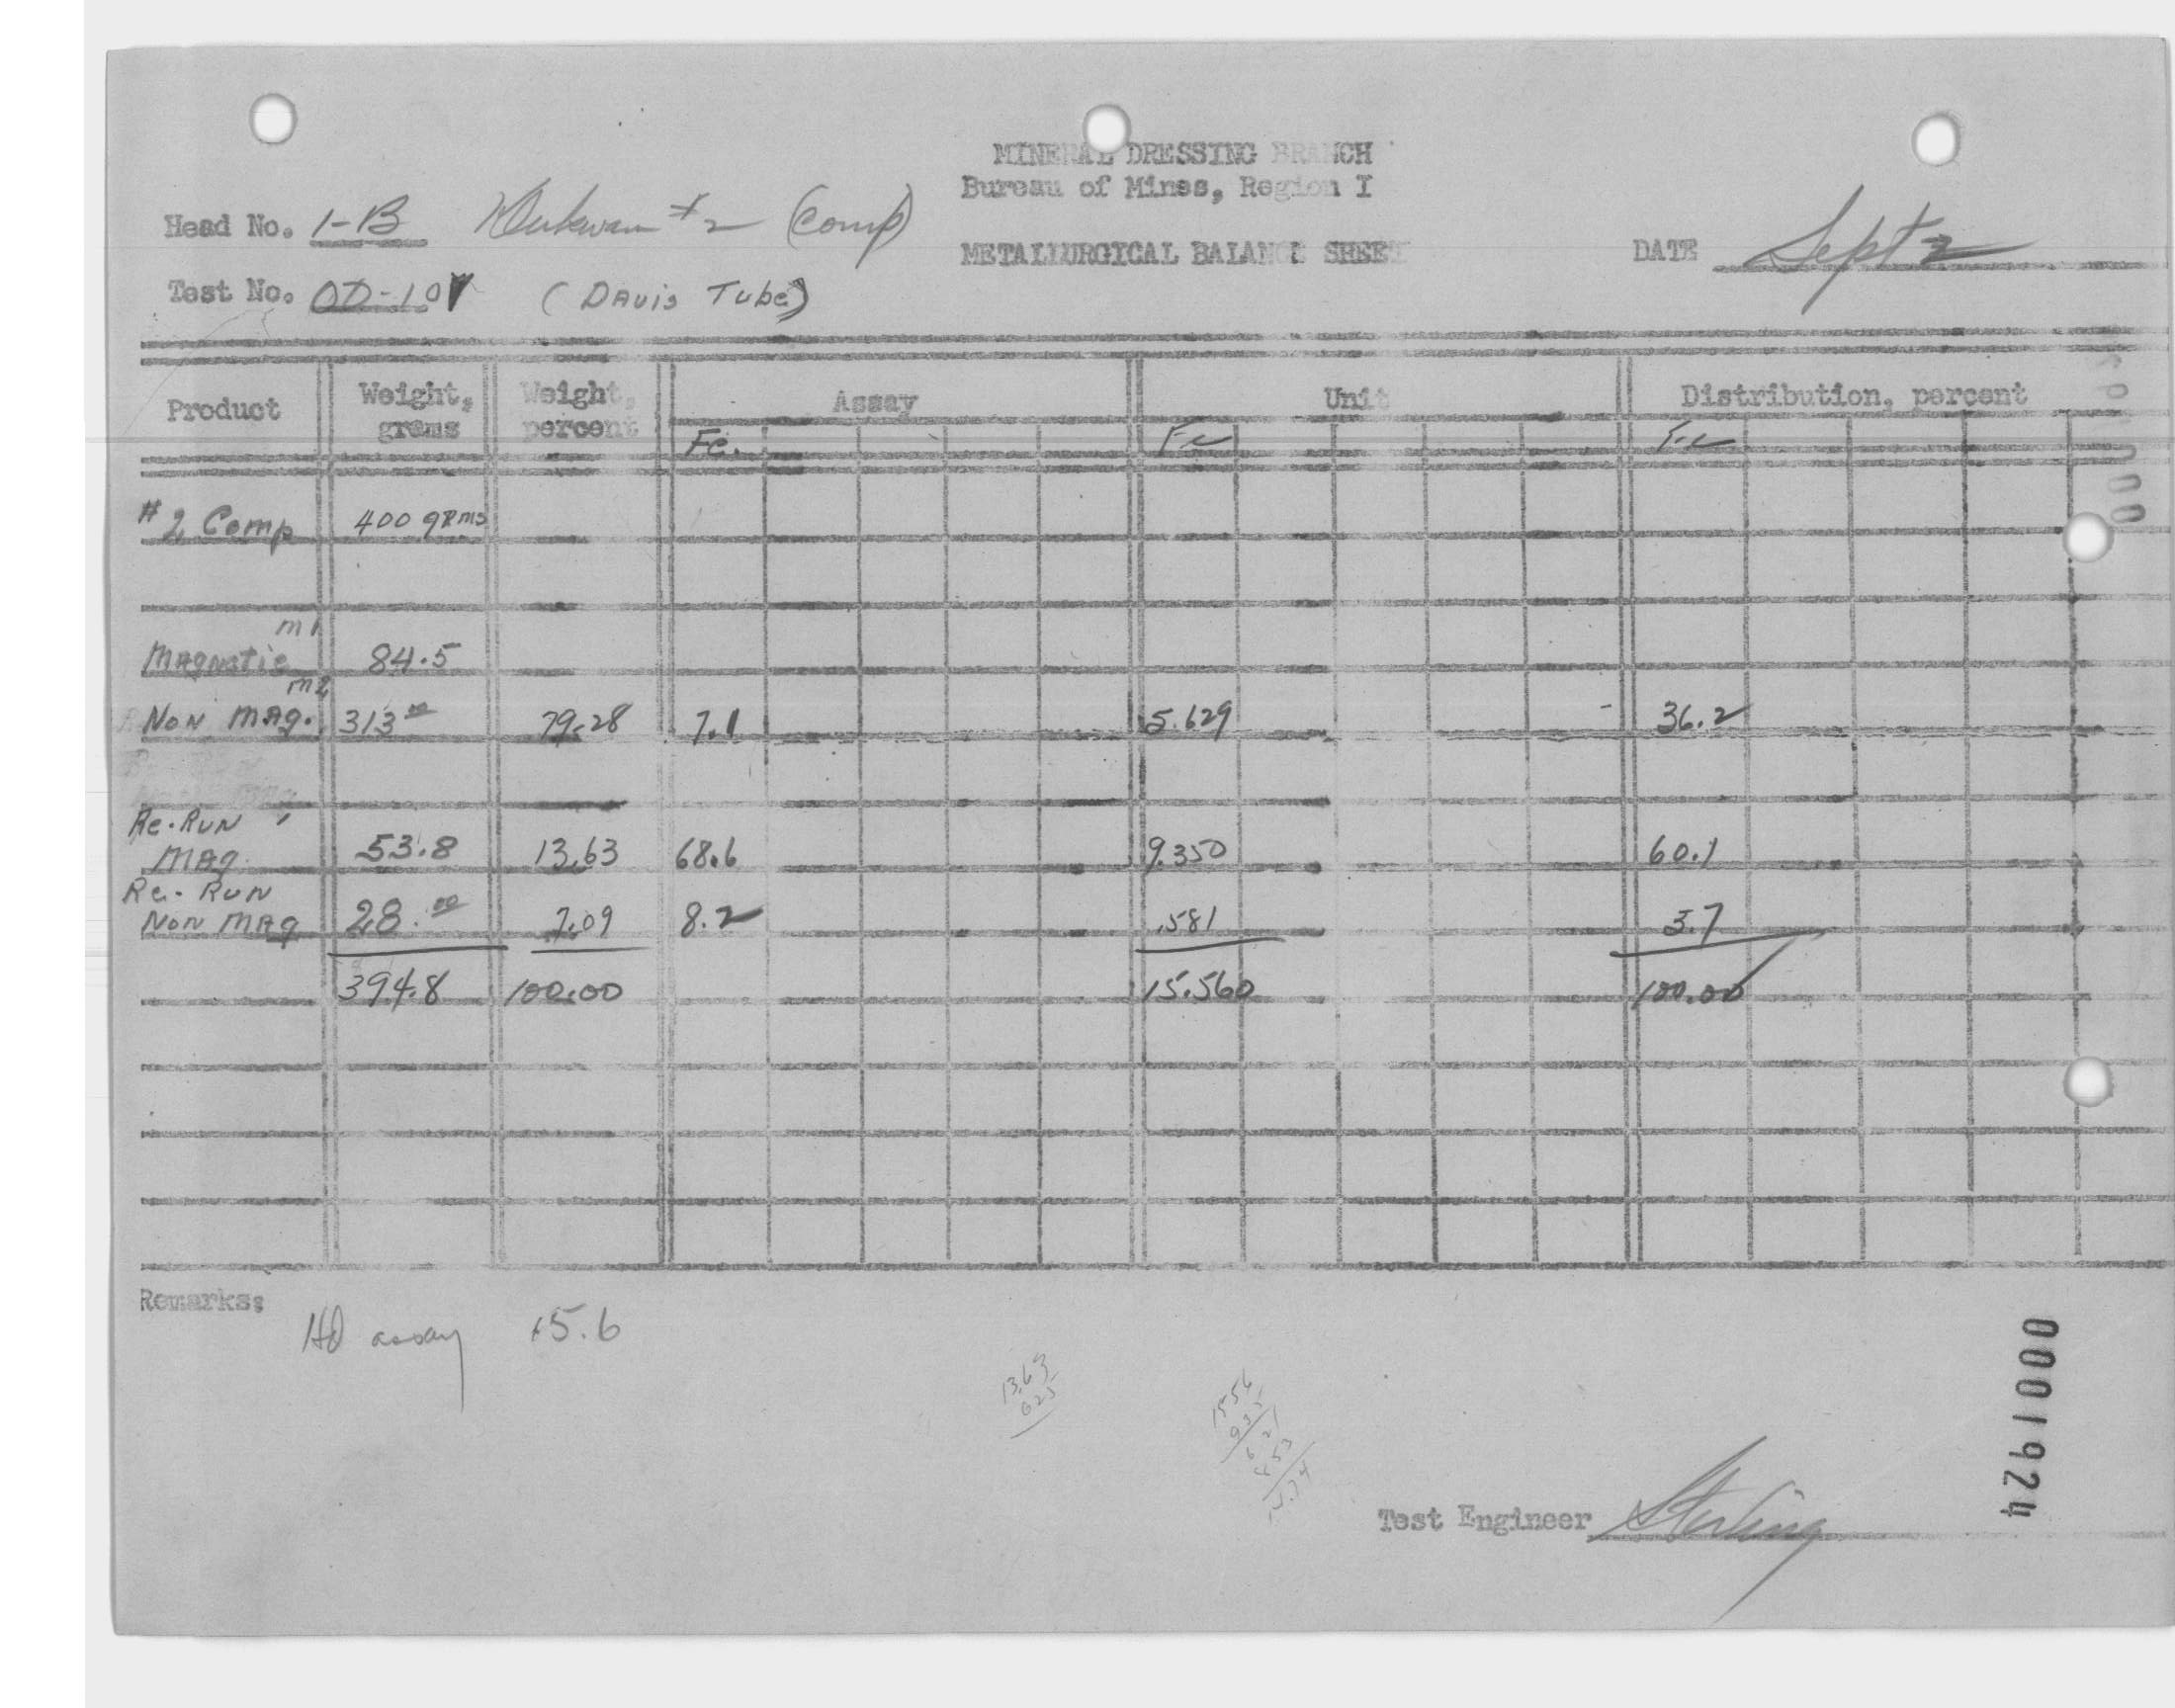 MINERAL DRESSING BRANCH
Bureau of Mines, Region I
Head No. 1-B #2 (Comp)
METALLURGICAL BALANCE SHEET
DATE Sept 2
Test No. OD-10 (Davis Tube)
Product Weight, grams Weight, percent Assay Unit Distribution, percent
Fe. Fe Fe
#2 Comp 400 grms
m1
Magnetic 84.5
m2
Non Mag. 313.00 79.28 7.1 5.629 36.2
Re-Run
Mag 53.8 13.63 68.6 9.350 60.1
Re-Run
Non Mag 28.00 7.09 8.2 .581 3.7
394.8 100.00 15.560 100.00
Remarks:
HD assay 15.6
13.63
625
1556
935
621
Test Engineer Sterling
0001924